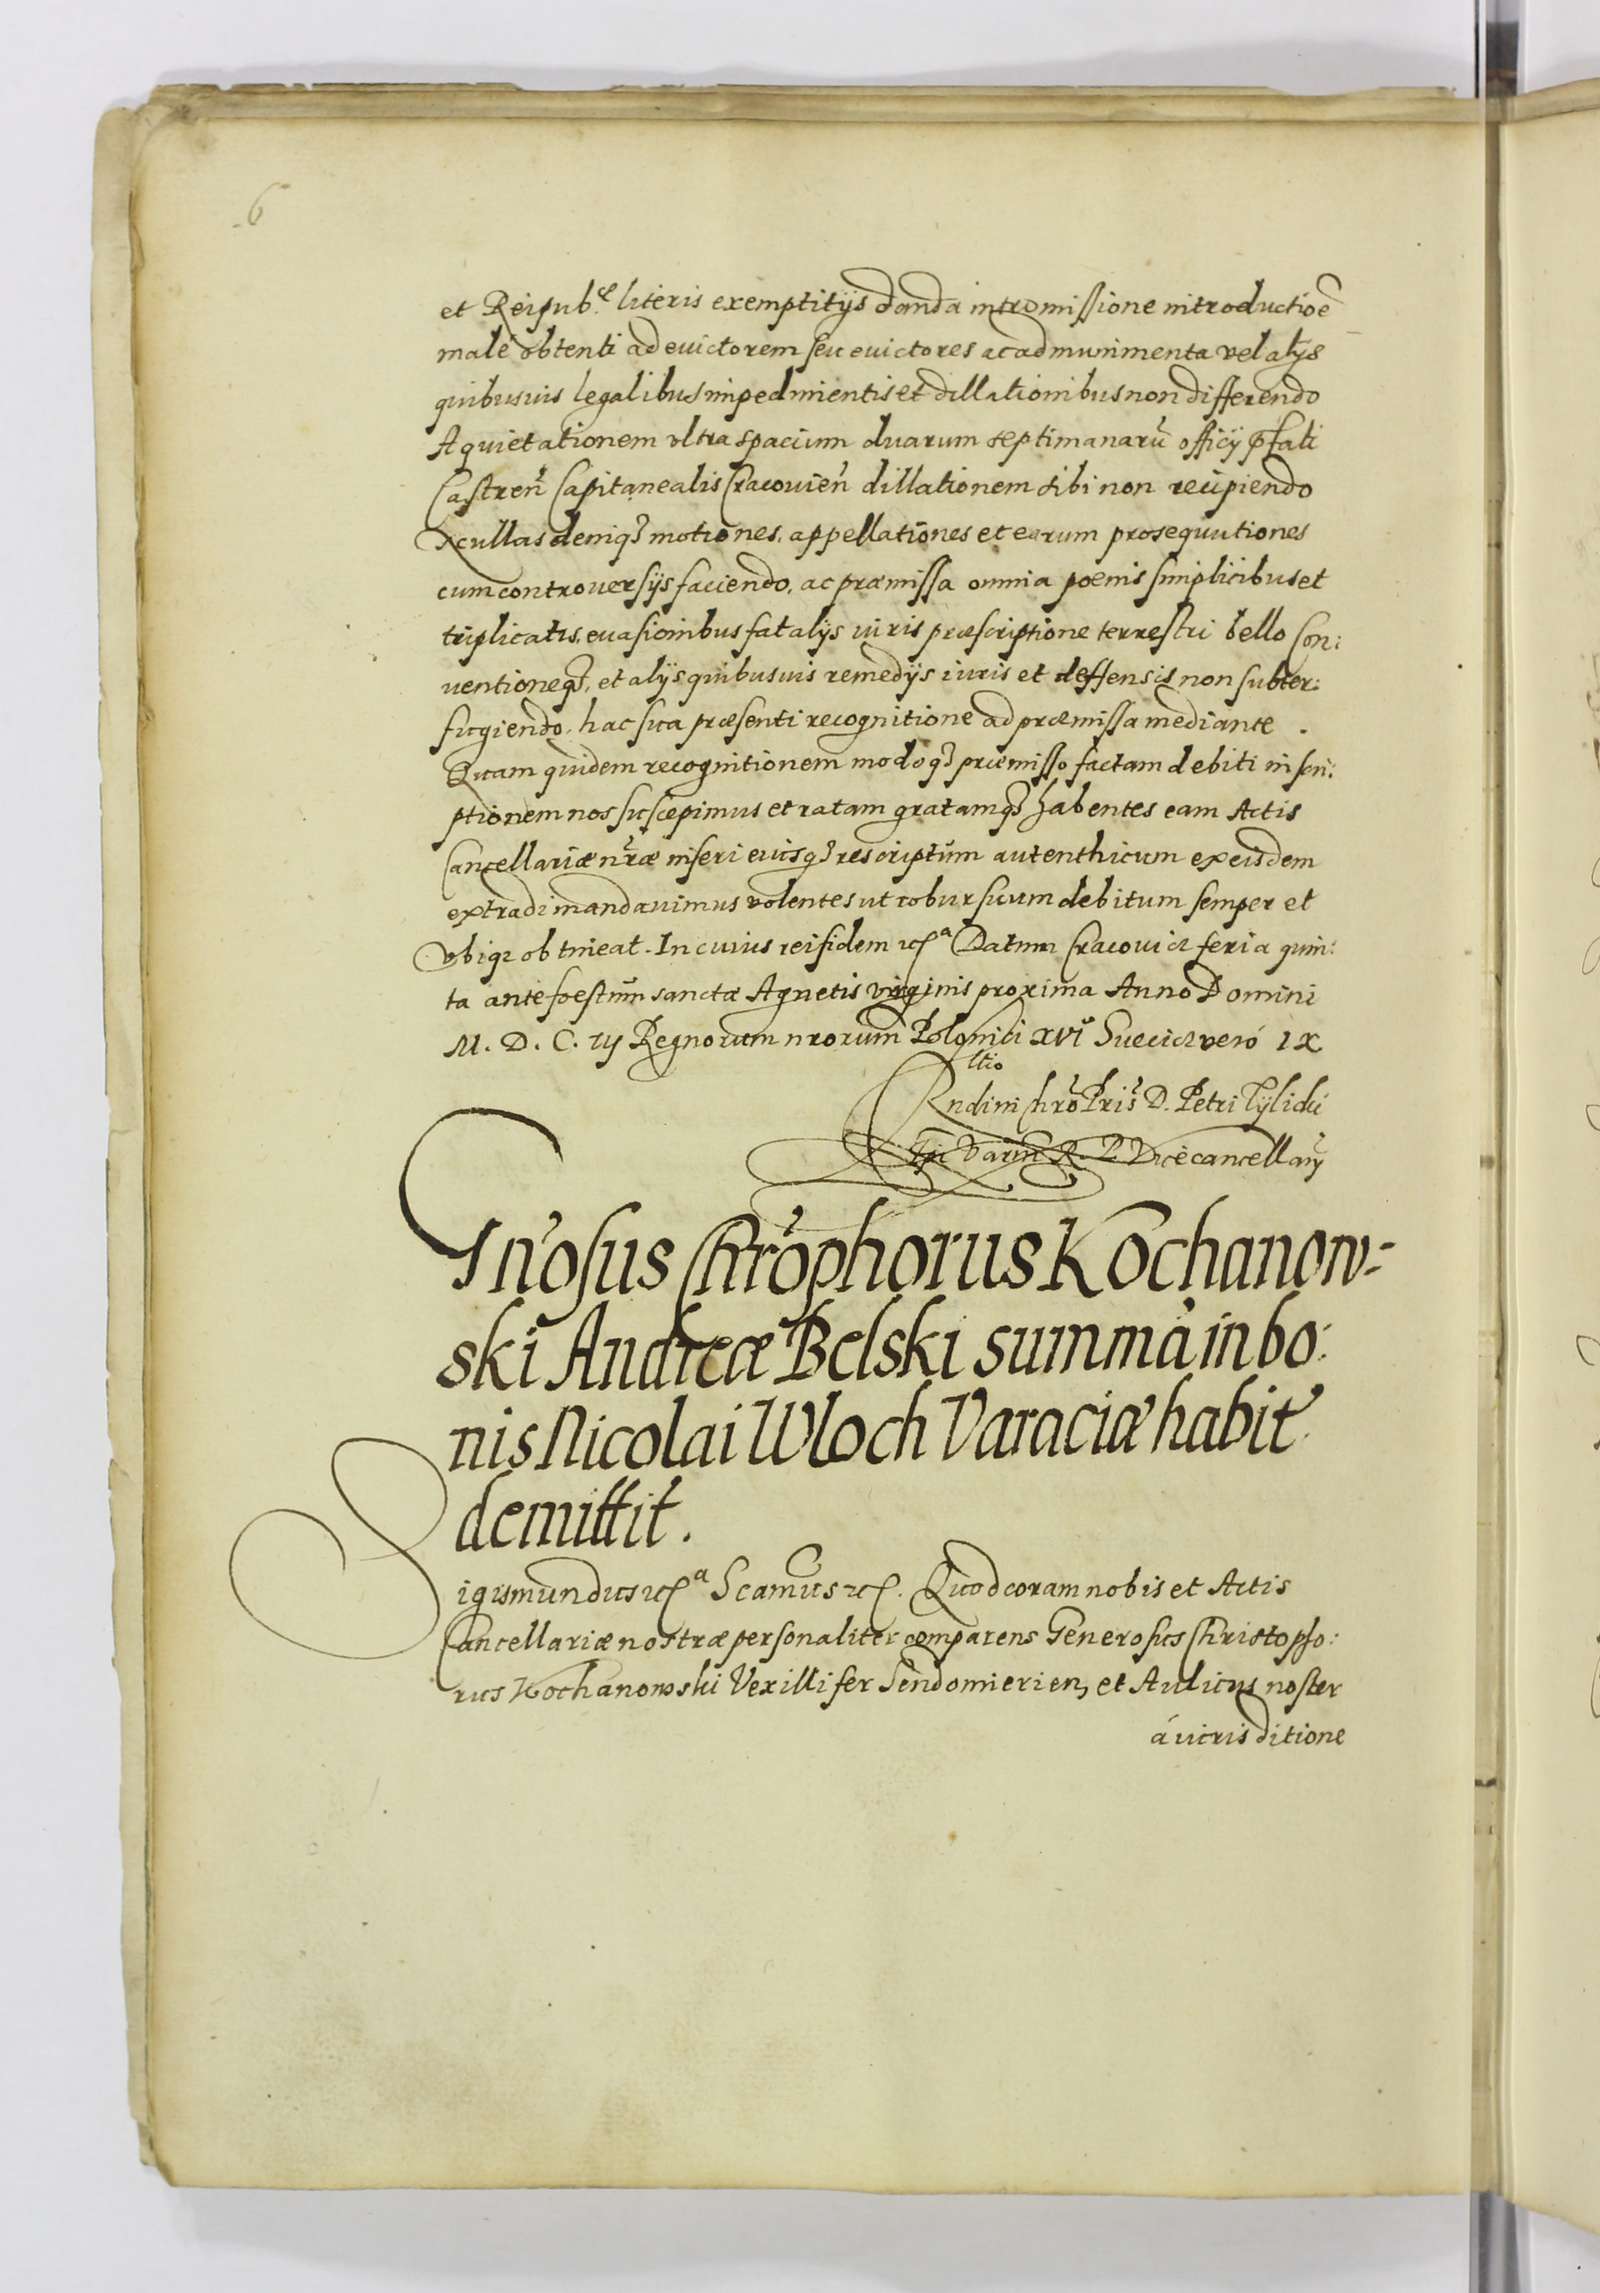 6
et Reipub.ce literis exemptitijs danda intromissione introductioē
male obtenti ad euictorem seu euictores ac ad munimenta vel alijs
quibusuis legalibus impedimentis et dillationibus non differendo
A quietationem vltra spacium duarum septimanarũ officij p̃fati
Castren̄ Capitanealis Cracouien̄ dillationem sibi non recipiendo
deniq3 motiones, appellationes et earum prosequutiones
cum controuersijs faciendo, ac præmissa omnia poenis simplicibus et
triplicatis, euasionibus fatalijs iuris præscriptione terrestri bello Con:
uentioneq3, et alijs quibusuis remedijs iuris et deffensis non subter:
fugiendo, hac sua præsenti recognitione ad præmissa mediante.
Quam quidem recognitionem modoq3 præmisso factam debiti inscri:
ptionem nos suscepimus et ratam gratamq3 habentes eam Actis
Cancellariæ nr̃æ inseri eiusq3 rescriptum autenthicum ex eisdem
extradi mandauimus volentes ut robur suum debitum semper et
vbiq3 obtineat. In cuius rei fidem etca Datum Cracouiæ feria quin:
ta ante foestum sanctæ Agnetis virginis proxima Anno Domini
M. D. C. iij Regnorum nrorum Poloniæ XVI Sueciæ vero IX
Rndim Chrō Pris D. Petri Tÿlicki
Epi Varm̃ R. P. Vicecancellarij
Gn̄osus Chr̄ophorus Kochanow-
ski Andreæ Belski summā in bo:
nis Nicolai Wloch Varaciæ habit̃
demittit.
Sigismundus etca Scamus etc. Quod coram nobis et Actis
Cancellariæ nostræ personaliter comparens Generosus Christopho:
rus Kochanowski Vexillifer Sendomierien, et Aulicus noster
á iurisditione